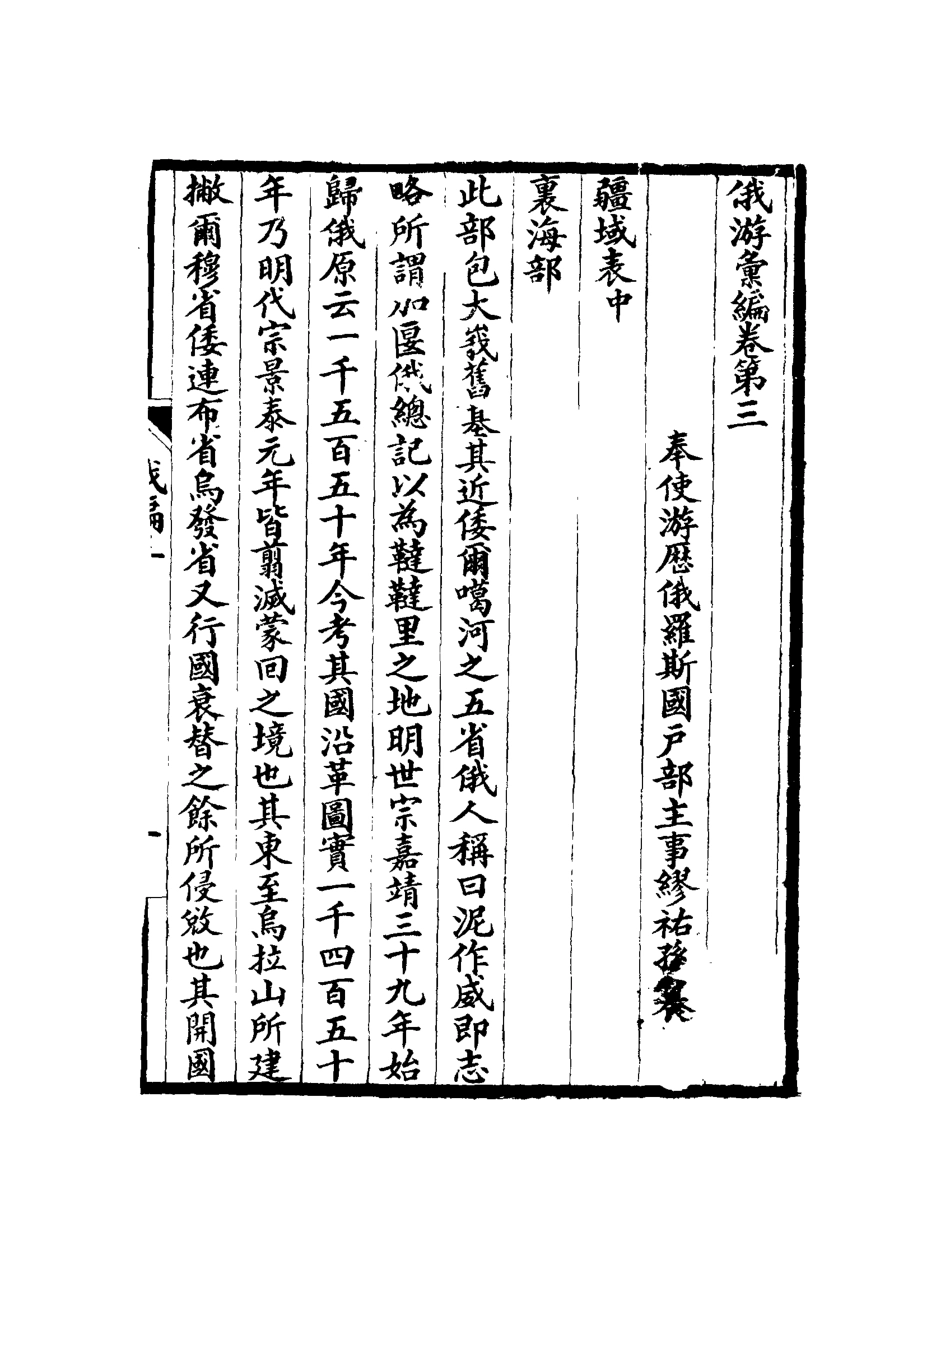 俄游彙編卷第三
奉使游歷俄羅斯國戶部主事繆祐孫纂
疆域表中
裏海部
此部包大羢舊基其近倭爾噶河之五省俄人稱曰泥作威即志
略所謂加匽俄總記以為韃韃里之地明世宗嘉靖三十九年始
歸俄原云一千五百五十年今考其國沿革圖實一千四百五十
年乃明代宗景泰元年皆翦滅蒙回之境也其東至烏拉山所建
撇爾穆省倭連布省烏發省又行國衰替之餘所侵攽也其開國